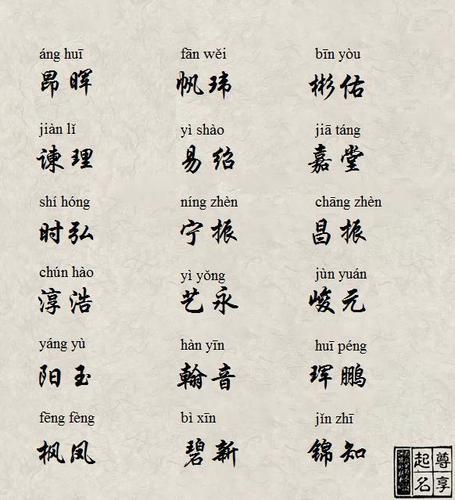 áng huī fān wěi bīn yòu
昂晖 帆玮 彬佑
jiàn lǐ yì shào jiā táng
谏理 易绍 嘉堂
shí hóng níng zhèn chāng zhèn
时弘 宁振 昌振
chún hào yì yǒng jùn yuán
淳浩 艺永 峻元
yáng yù hàn yīn huī péng
阳玉 翰音 珲鹏
fēng fèng bì xīn jǐn zhī
枫凤 碧新 锦知
尊享
起名